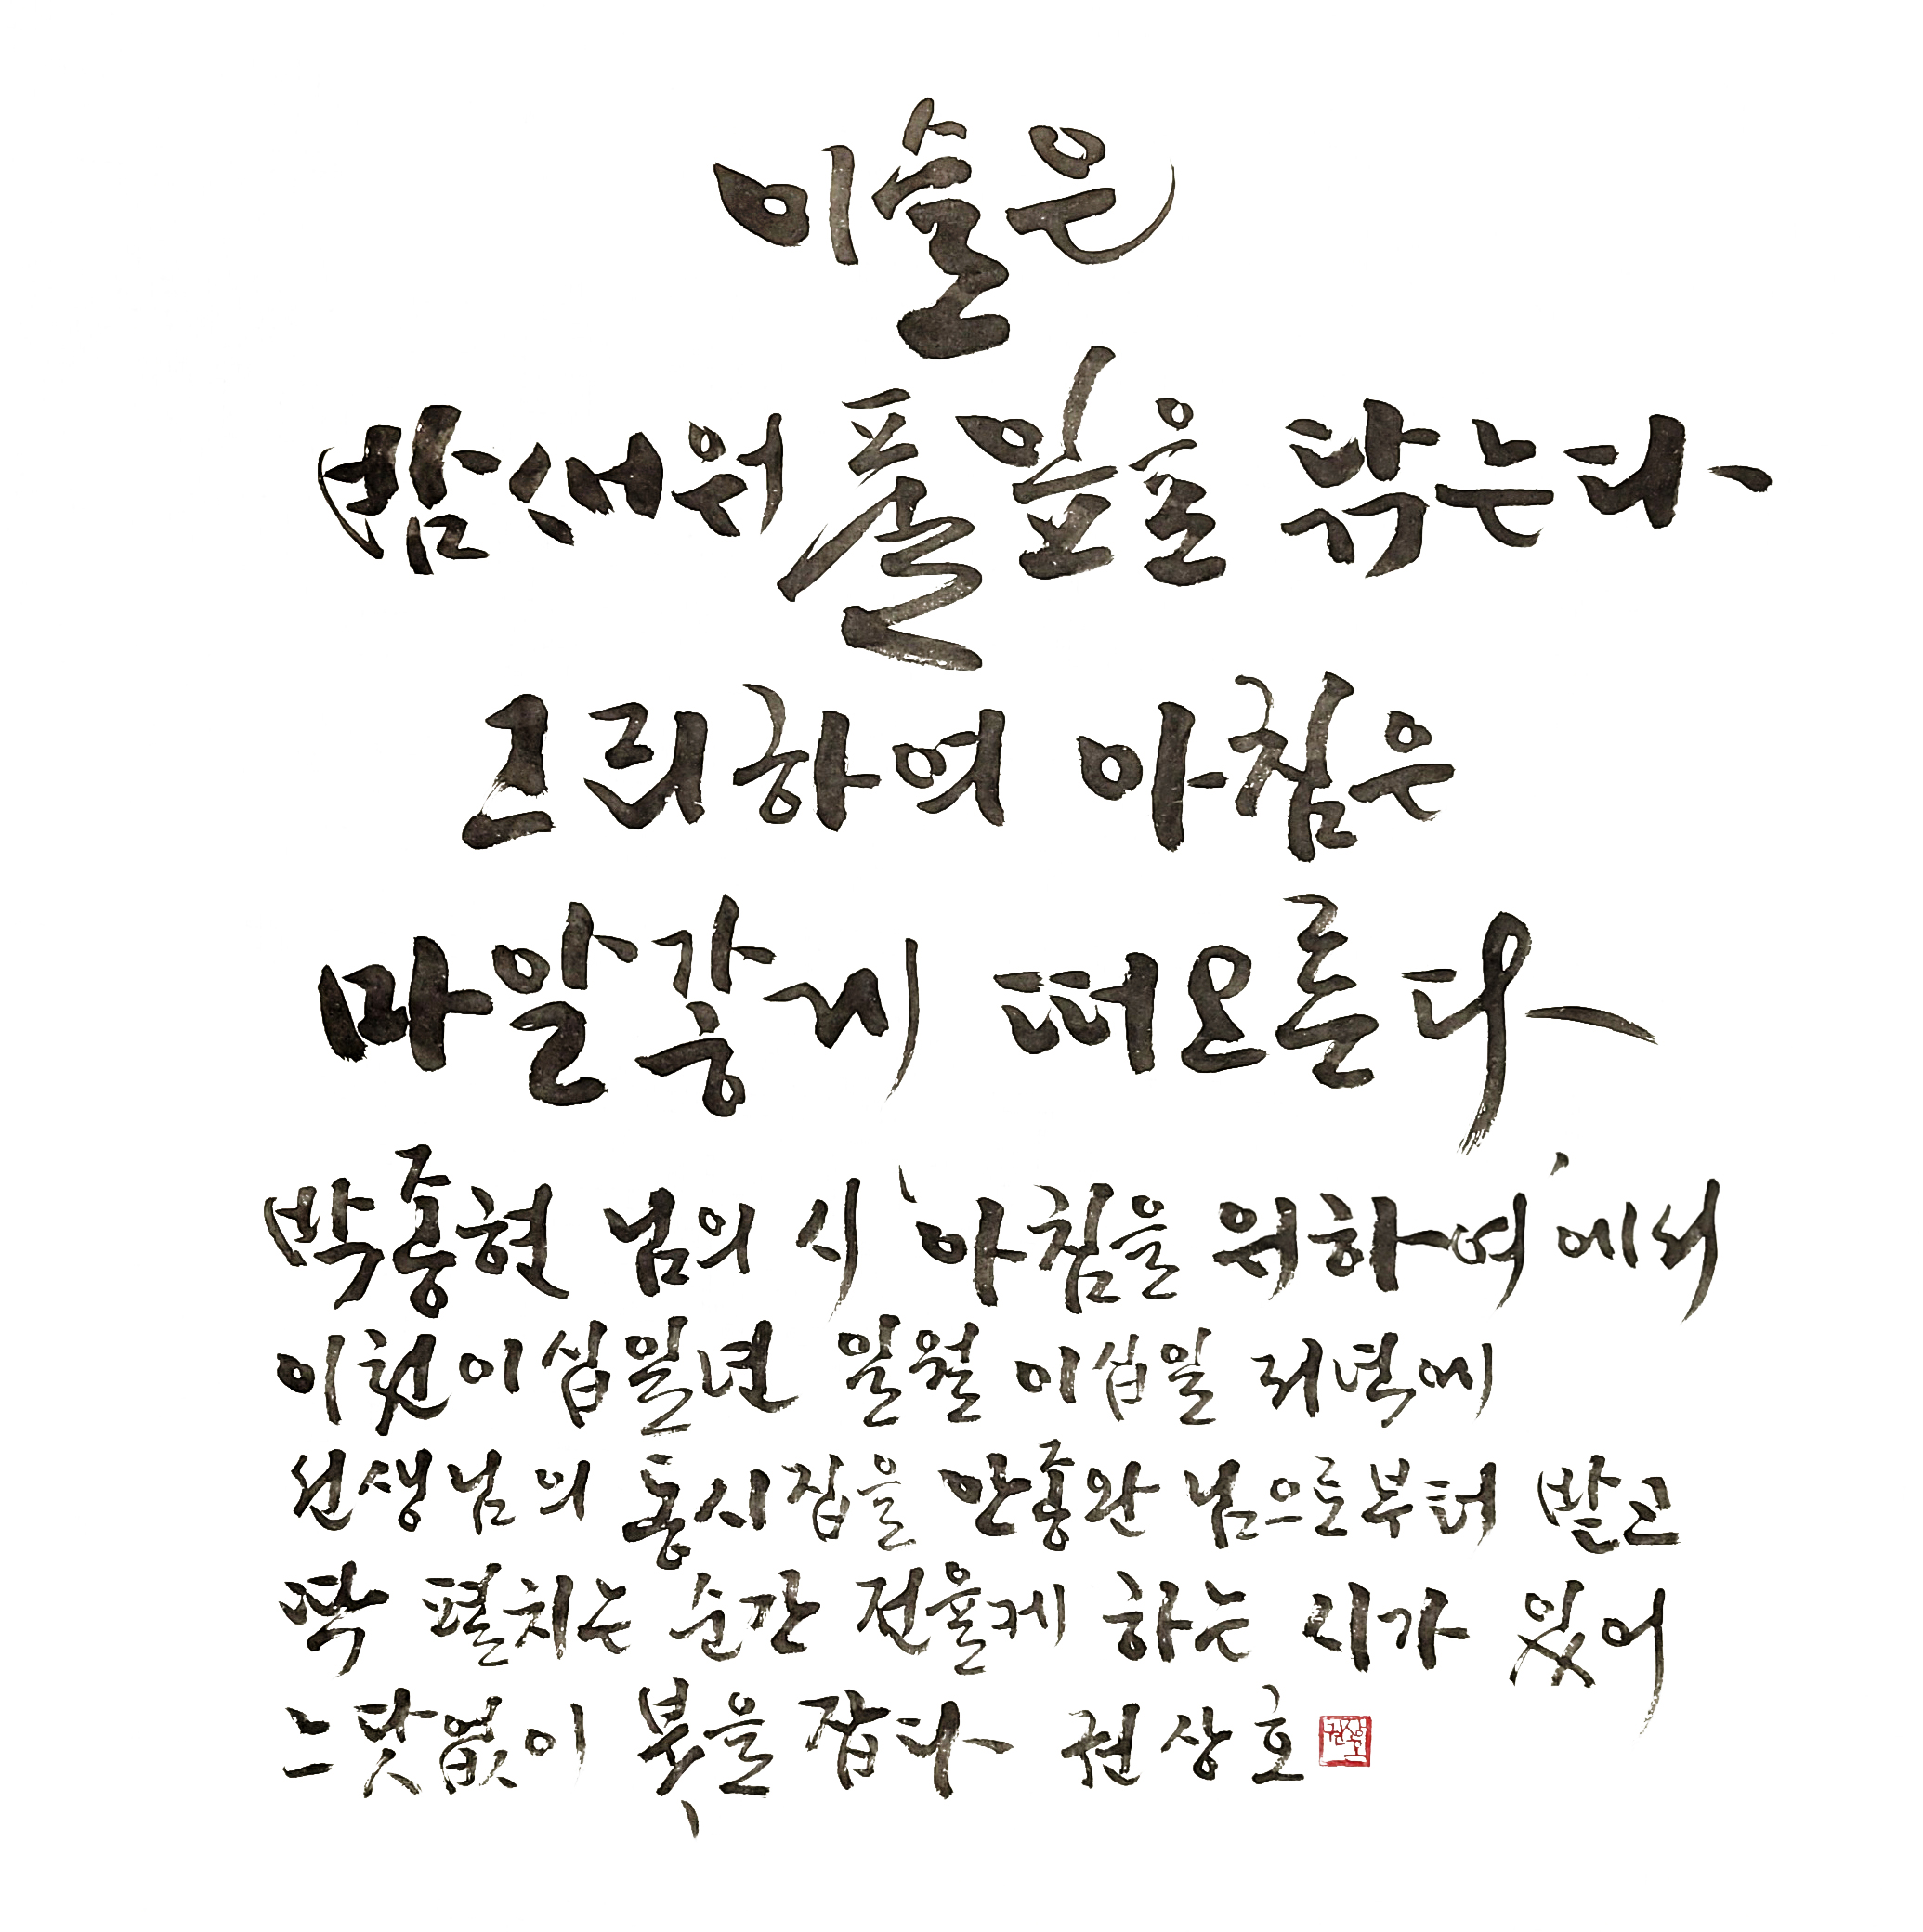 이슬은
밤새워 풀잎을 닦는다
그리하여 아침은
마알갛게 떠오른다
박종현 님의 시 '아침을 위하여'에서
이천이십일년 일월 이십일 저녁에
선생님의 동시집을 안종완 님으로부터 받고
딱 펼치는 순간 전율케 하는 시가 있어
느닷없이 붓을 잡다 권상호
권상호